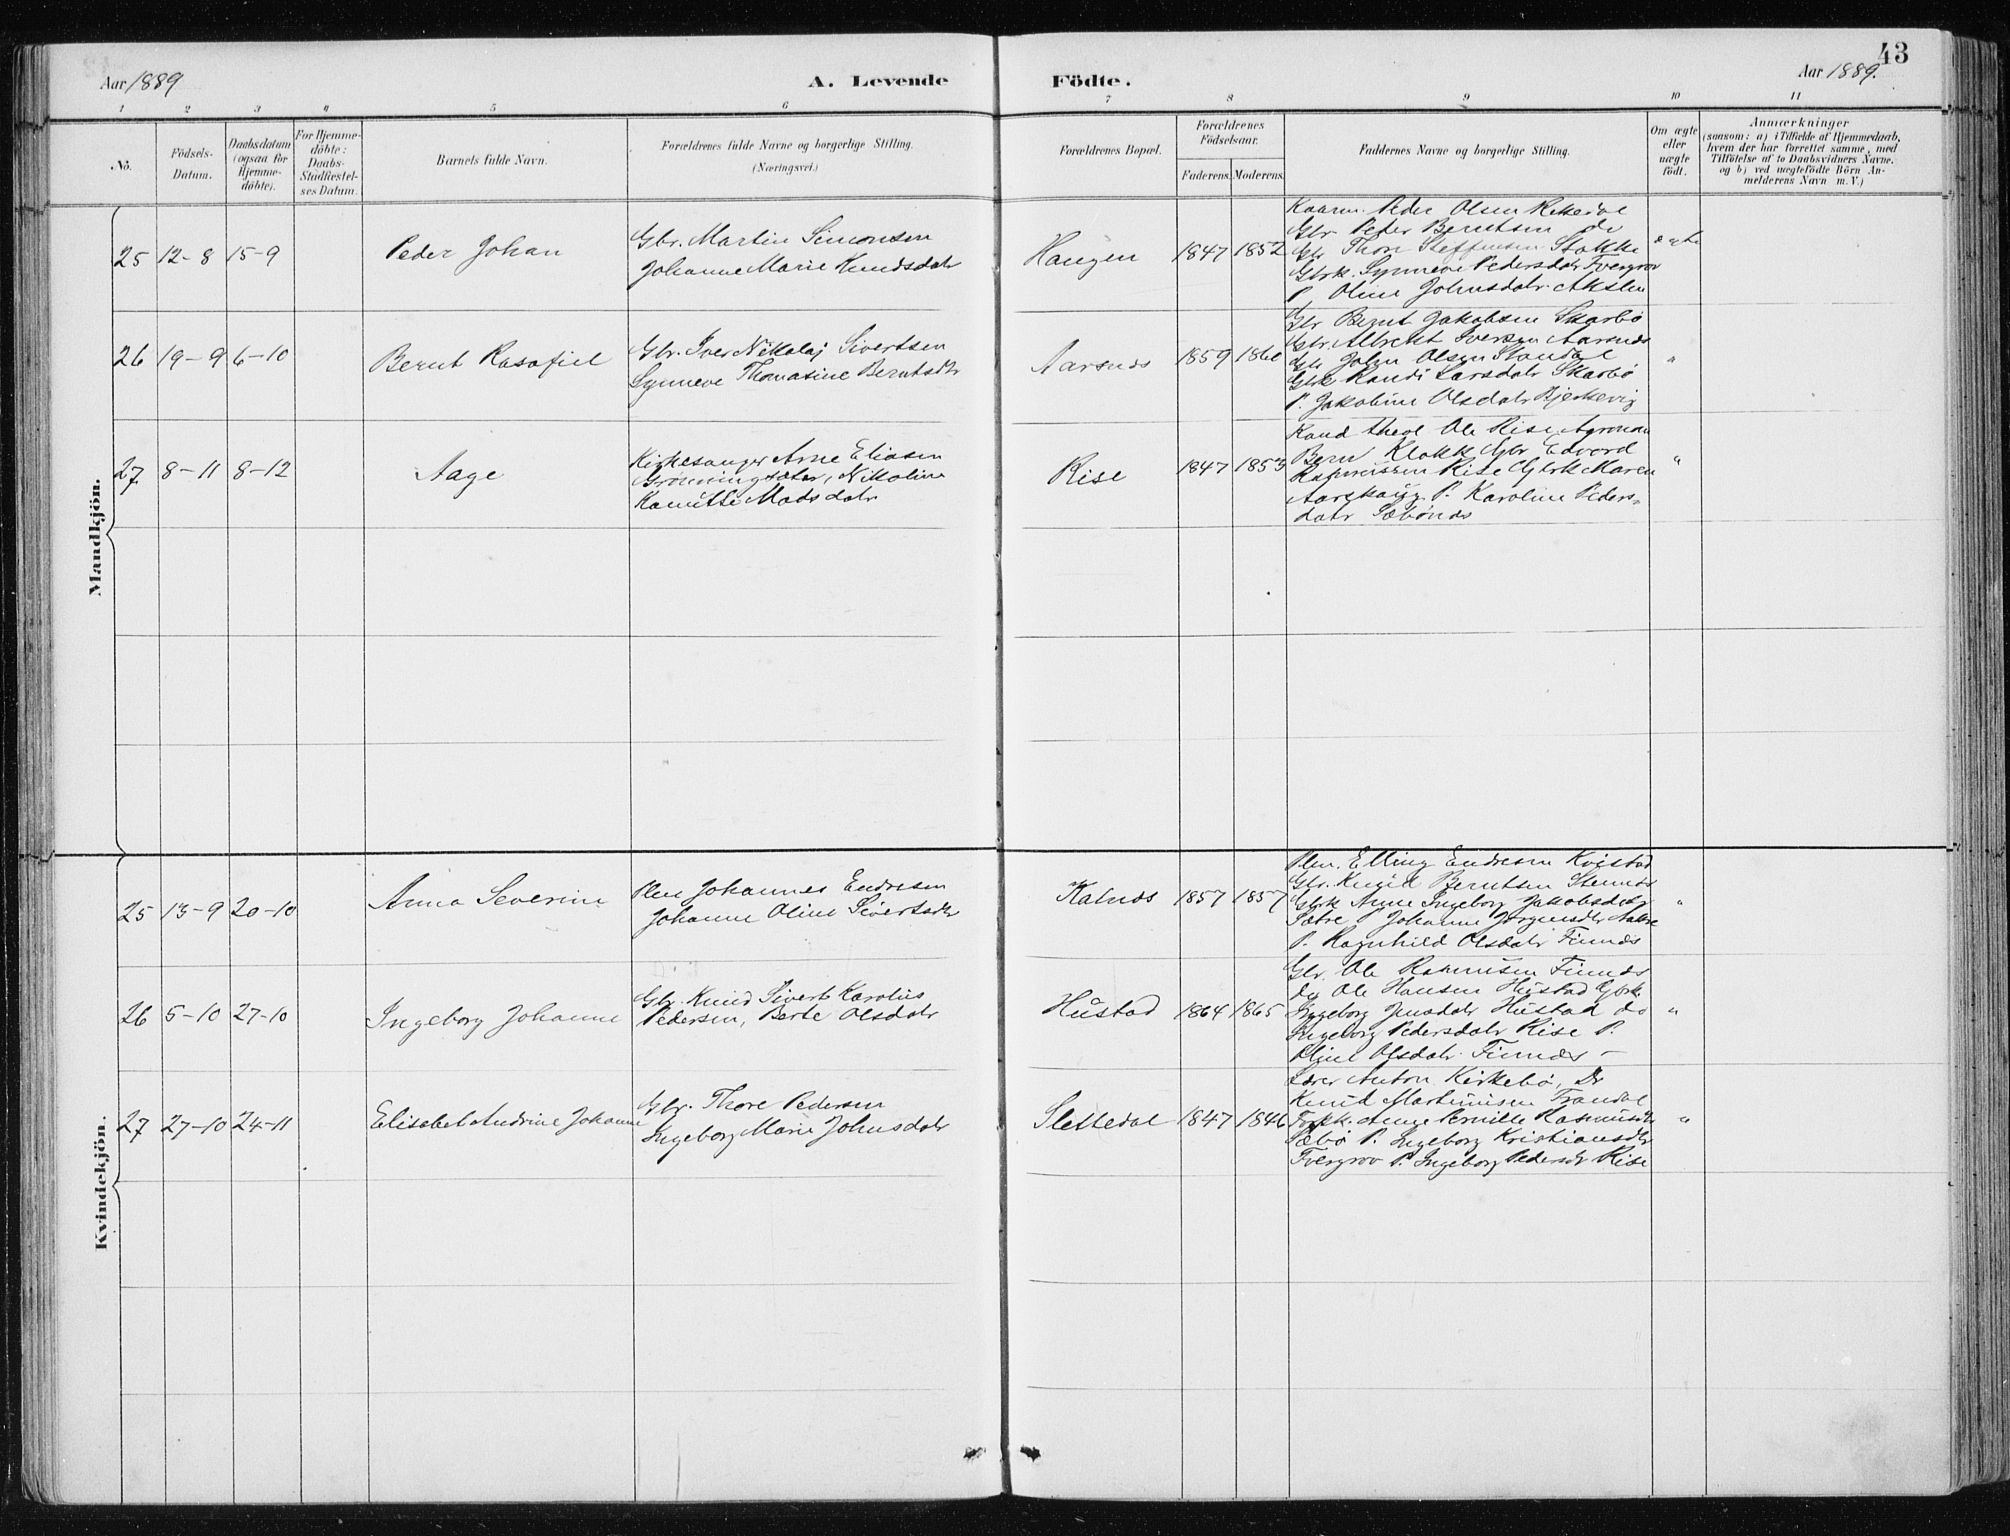 43
Aar 1889
A. Levende
Födte.
Aar 1889.
1 2 3 4 5 6 7 8 9 10 11
No.
Födsels-
Datum.
Daabsdatum
(ogsaa for
Hjemme-
döbte).
For Hjemme-
döbte:
Daabs-
Stadfæstel-
ses Datum.
Barnets fulde Navn.
Forældrenes fulde Navne og borgerlige Stilling.
(Næringsvei.)
Forældrenes Bopæl.
Forældrenes
Födselsaar.
Faderens.
Moderens.
Faddernes Navne og borgerlige Stilling.
Om ægte
eller
uægte
födt.
Anmærkninger
(saasom: a) i Tilfælde af Hjemmedaab,
hvem der har forrettet samme, med
Tilföielse af to Daabsvidners Navne.
og b) ved uægtefödte Börn An-
melderens Navn m. V.)
Mandkjön.
25 12-8 15-9
Peder Johan
Gbr. Martin Simonsen
Johanne Marie Knudsdatr
Haugen
1847 1852
Peder Olsen Rekkedal
Gbr Peder Berntsen do
Gbr Thore Steffensen Stokke
Gbrk. Synneve Pedersdatr Tvergrov
P. Oline Johnsdatr. Akslen
ægte
26 19-9 6-10
Bernt Rasofiel
Gbr. Iver Nikolaj Sivertsen
Synneve Thomasine Berntsdtr
Aarsnes
1859 1860
Gbr Bernt Jakobsen Skarbö
Gbr. Albrekt Iversen Aarsnes
Gbr John Olsen Standal
Gbrk Randi Larsdatr Skarbö
P. Jakobine Olsdatr Bjerkevig
"
27 8-11 8-12
Aage
Kirkesanger Arne Eliasen
Grönningsæter, Nikoline
Kamille Madsdatr
Rise
1847 1853
Kand theol Ole Rise Agronom
Bern Klokk Gbr Edvard
Rasmussen Rise Gbrk Maren
Aarskaug P. Karoline Peders-
datr Sæbönes
"
Kvindekjön.
25 13-9 20-10
Anna Severine
Johannes Endresen
Johanne Oline Sivertsdtr
Kalnes
1857 1857
Elling Endresen Kvistad
Gbr. Knud Berntsen Stennes
Gbrk Anne Ingeborg Jakobsdatr
Sætre P Johanne Jörgensdtr Aakre
P. Ragnhild Olsdatr Finnes
"
26 5-10 27-10
Ingeborg Johanne
Gbr. Knud Sivert Karolius
Pedersen, Berte Olsdatr
Hustad
1864 1865
Gbr. Ole Rasmusen Finnes
do Ole Hansen Hustad Gbrk.
Ingeborg Jensdatr Hustad do
Ingeborg Pedersdatr Rise P.
Oline Olsdatr. Finnes -
"
27 27-10 24-11
Elisabet Andrine Johanne
Gbr. Thore Pedersen
Ingeborg Marie Johnsdatr
Slettedal
1847 1846
Lærer Anton Kirkebö,
Knud Martinusen Trandal
Pernille Rasmusdtr
Sæbö P. Ingeborg Kristiansdtr
Tvergrov P. Ingeborg Pedersdtr Rise
"